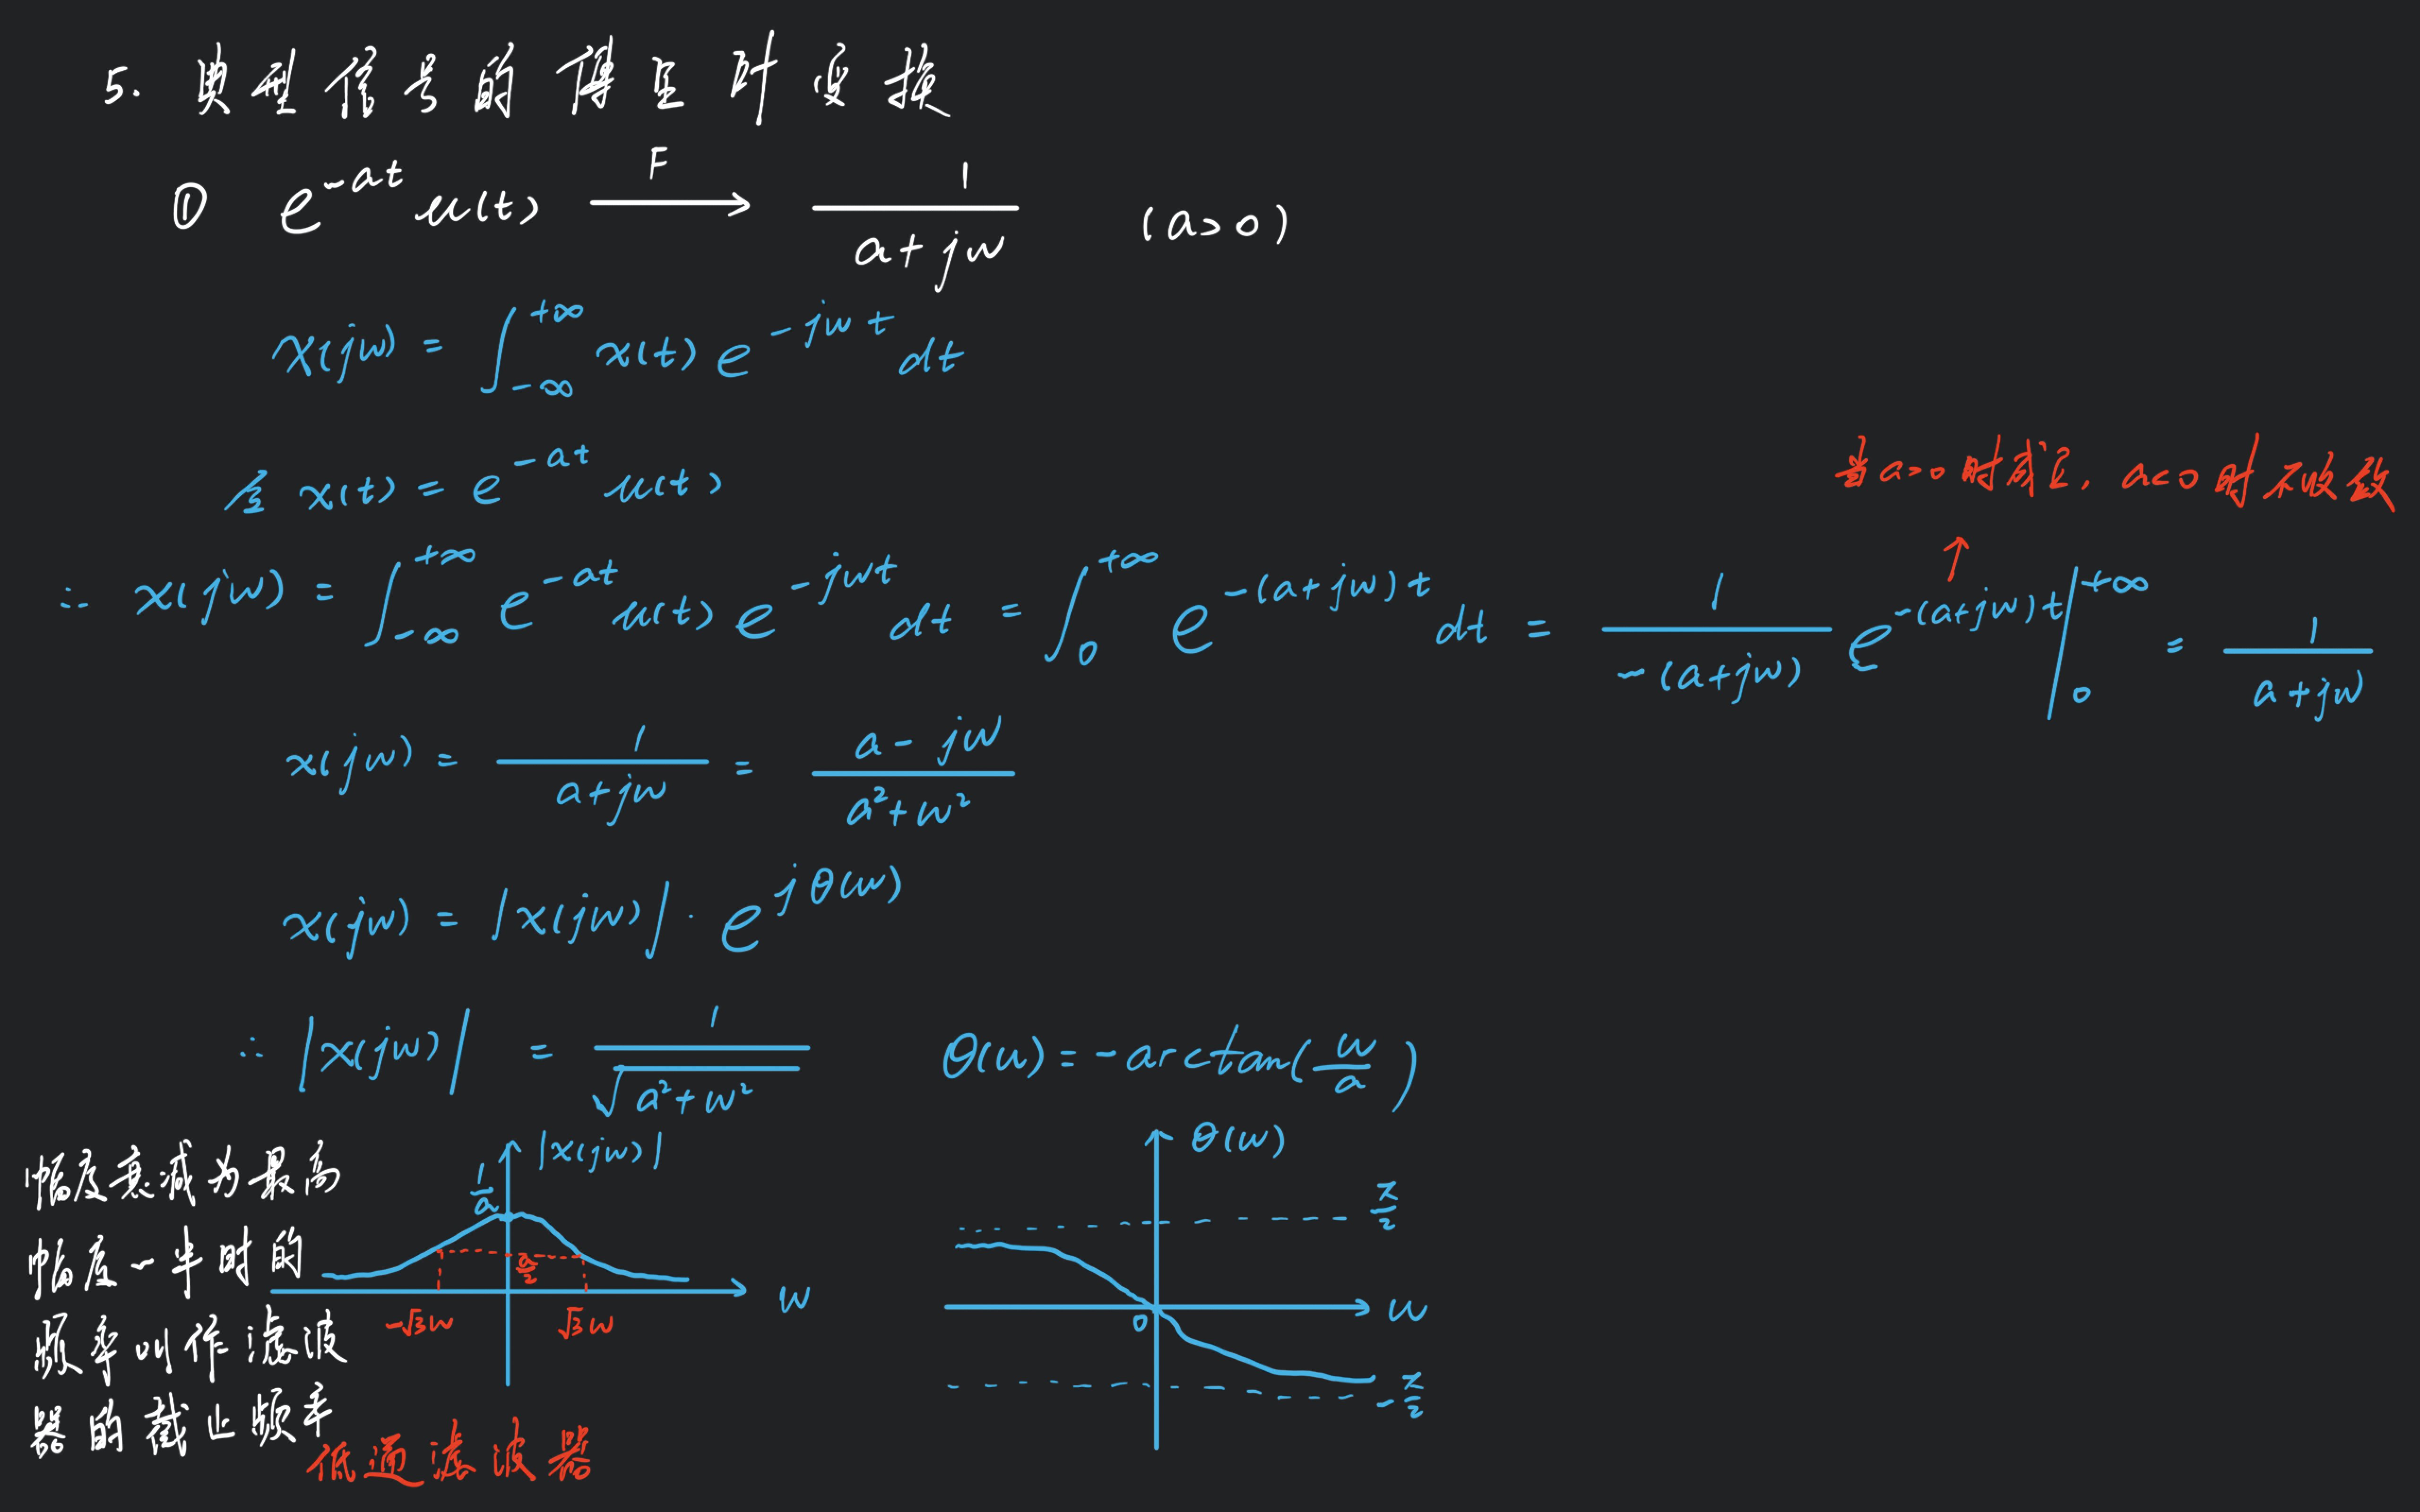 5. 典型信号的傅里叶变换
① e^{-at} u(t) \xrightarrow{F} \frac{1}{a+jw} (a>0)
x(jw) = \int_{-∞}^{+∞} x(t) e^{-jwt} dt
令 x(t) = e^{-at} u(t)
当a>0时成立, a<0时不收敛
∴ x(jw) = \int_{-∞}^{+∞} e^{-at} u(t) e^{-jwt} dt = \int_{0}^{+∞} e^{-(a+jw)t} dt = \frac{1}{-(a+jw)} e^{-(a+jw)t} |_{0}^{+∞} = \frac{1}{a+jw}
x(jw) = \frac{1}{a+jw} = \frac{a-jw}{a²+w²}
x(jw) = |x(jw)| · e^{jθ(w)}
∴ |x(jw)| = \frac{1}{\sqrt{a²+w²}} θ(w) = -arctan(\frac{w}{a})
幅度衰减为最高
幅度一半时的
频率叫作滤波
器的截止频率
|x(jw)|
\frac{1}{a}
\frac{a}{2}
w
-√3w √3w
低通滤波器
θ(w)
\frac{π}{2}
0 w
-\frac{π}{2}